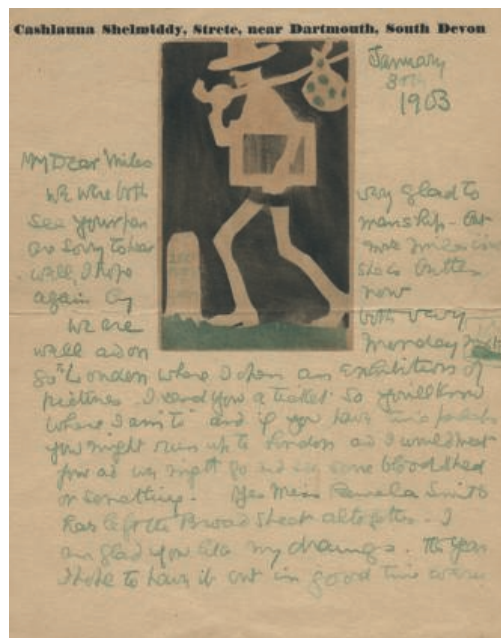 Cashlauna Shelmiddy, Strete, near Dartmouth, South Devon
January
30th
1903
My Dear Miles
we were both very glad to
see your penmanship - but
are sorry to hear Mrs Miles isn't
well, I hope she is better
again by now
We are both very
well and on Monday next
go to London where I open an exhibition of
pictures I send you a ticket so you'll know
where I am to and if you have time perhaps
you might run up to London and I would meet
you and we might go and see some bloodshed
or something. Yes Miss Pamela Smith
has left the Broad Sheet altogether. I
am glad you like my drawings. this year
I hope to have it out in good time every